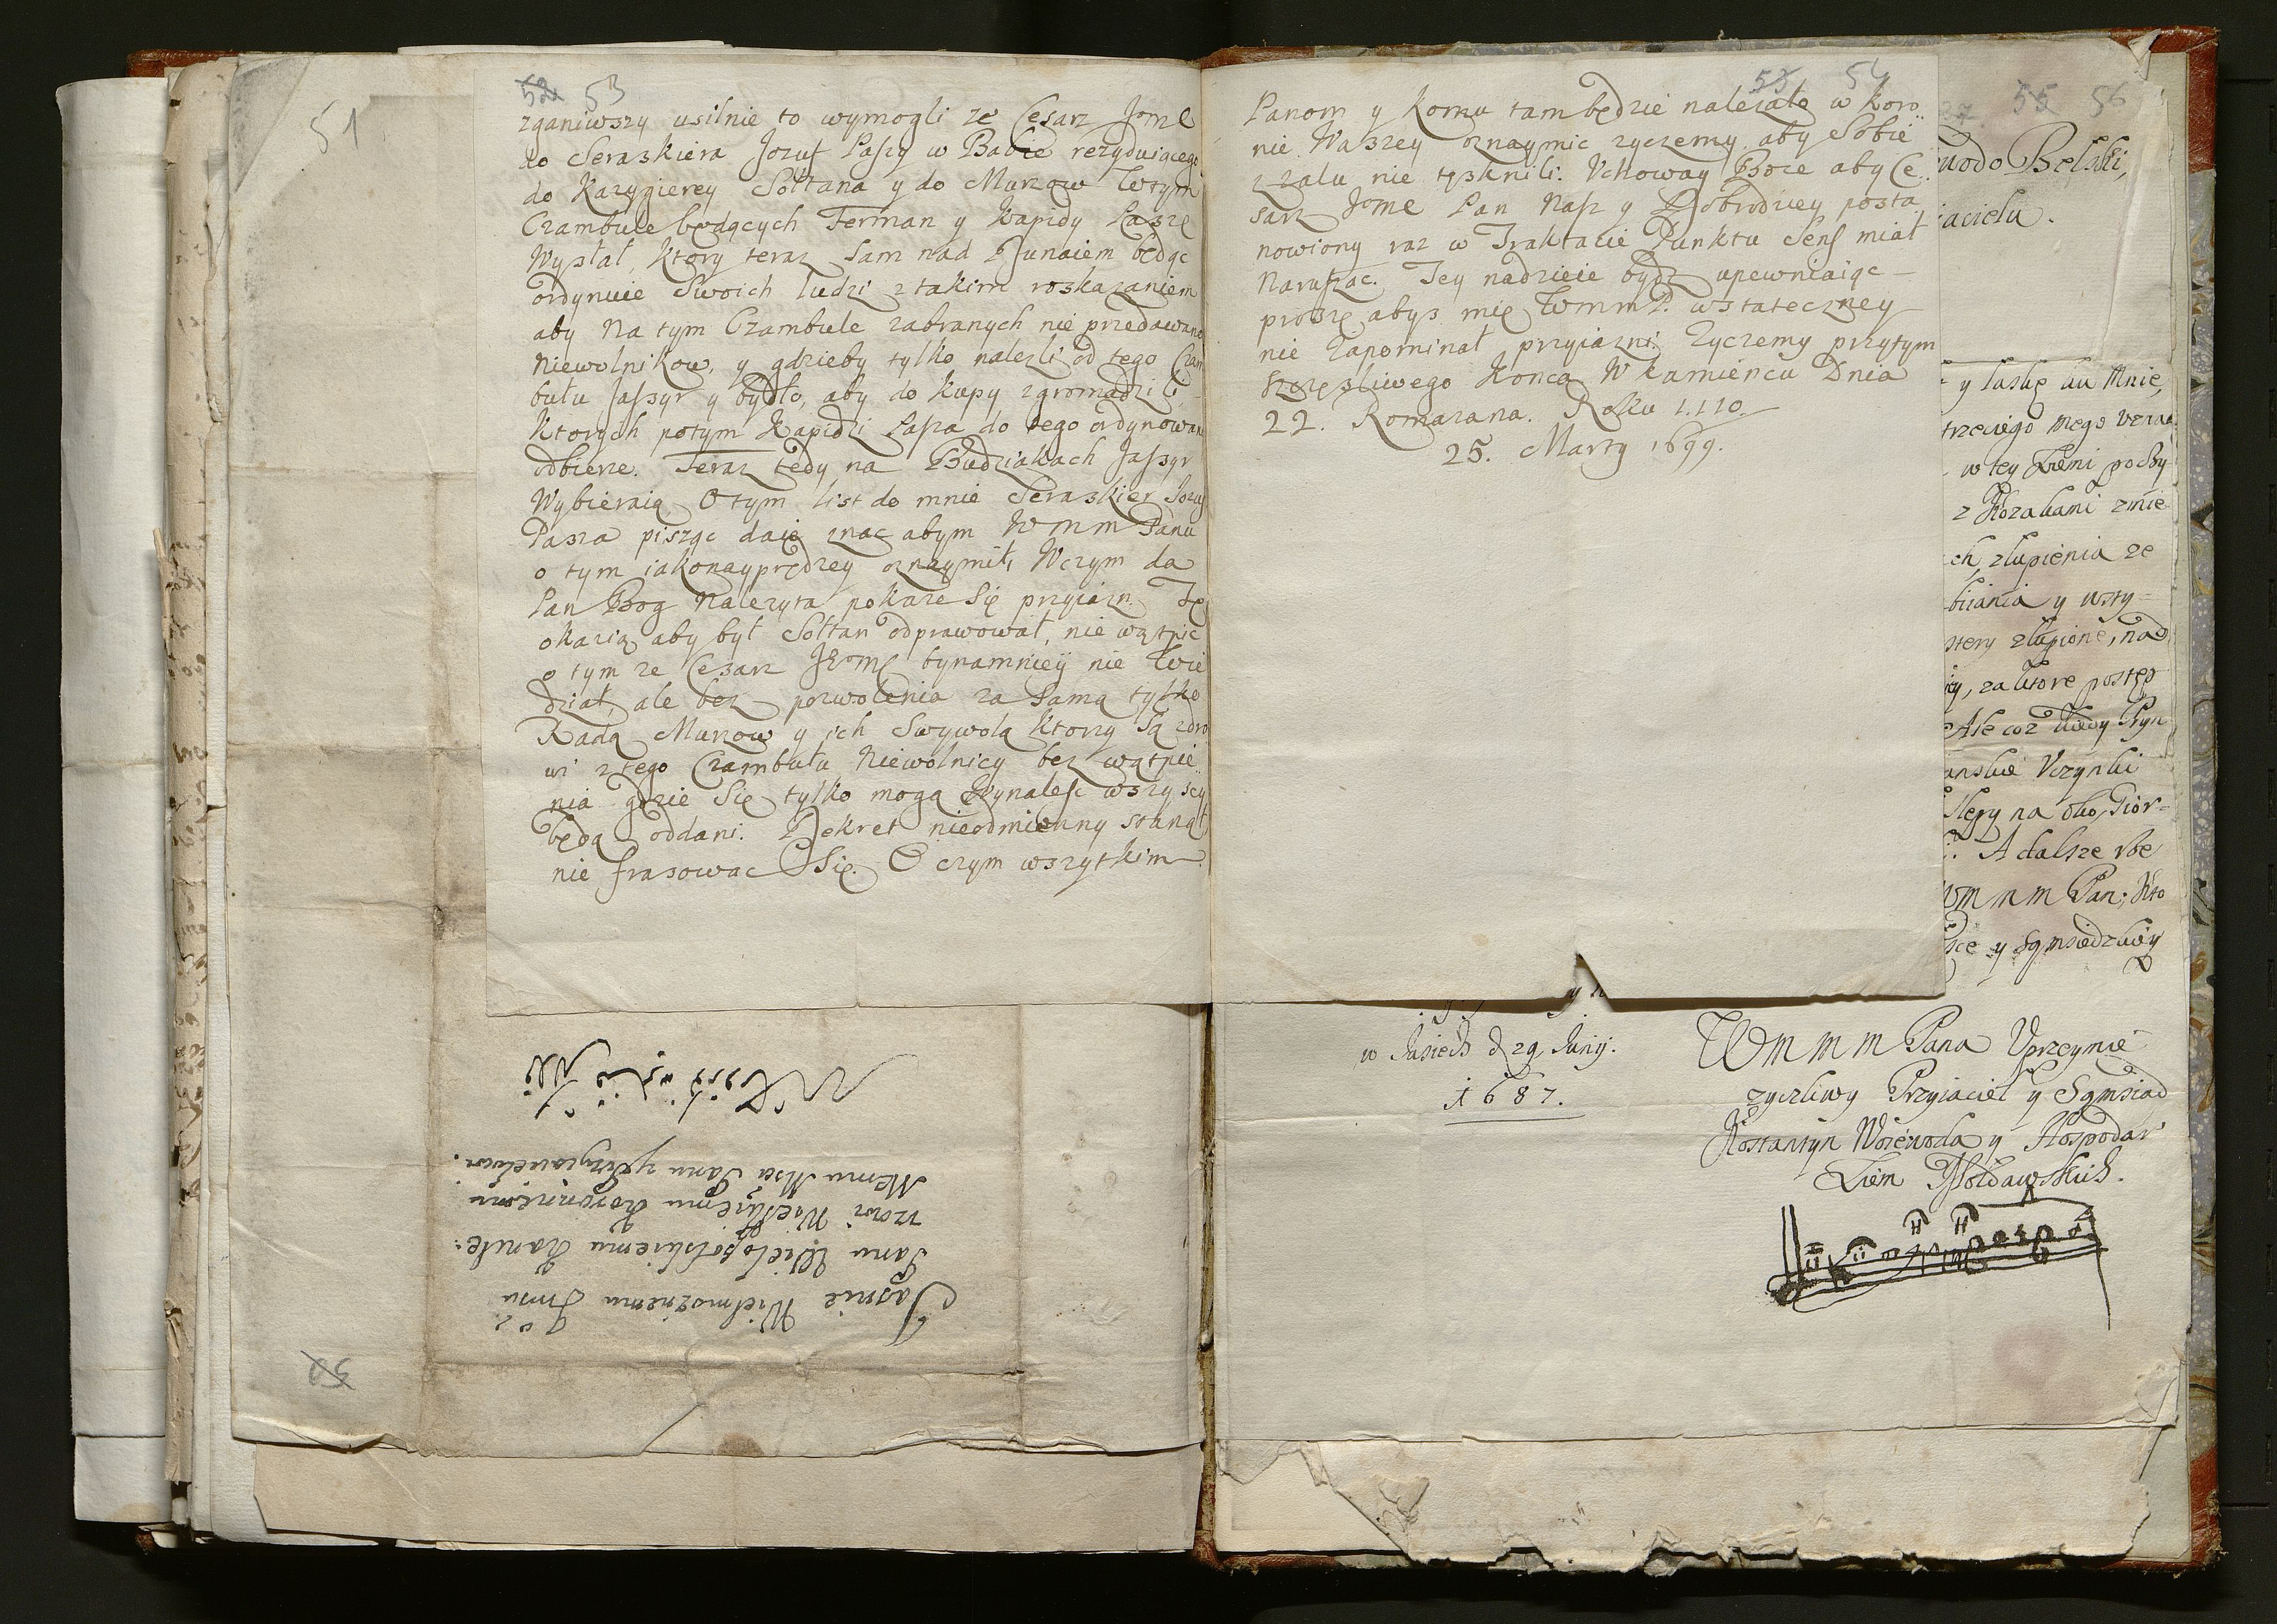 51
52 53
zganiwszy usilnie to wymogli ze Cesarz Jome
do Seraskiera Jozuf Paszy w Babie rezyduiącego
do Kazygierey Sołtana y do Murzow w tym
Czambule będących Ferman y Kapidy Paszę
Wysłał, Ktory teraz Sam nad Dunaiem będąc
ordynuie Swoich ludzi z takim roskazaniem
aby Na tym Czambule zabranych nie przedawano
Niewolnikow, y gdzieby tylko nalezli od tego Czam
bułu Jassyr y bydło, aby do Kupy zgromadzili,
Ktorych potym Kapidzi Pasza do tego ordynowany
odbierze. Teraz tedy na Budziakach Jassyr
Wybieraią O tym list do mnie Seraskier Jozuf
Pasza pisząc daie znac abym W M M Panu
o tym iakonayprędzey oznaymił, W czym da
Pan Bog Nalezyta pokaze Się przyiazn. Tę
okazią aby był Sołtan odprawował, nie wątpic
o tym ze Cesarz Jeome bynamniey nie wie
dział, ale bez pozwolenia za Samą tylko
Radą Murzow y ich Swywolą Ktorzy Są zdro
wi z tego Czambułu Niewolnicy bez wątpie
nia gdzie Się tylko mogą Wynalesc wszyscy
będą oddani. Dekret nieodmienny stanął
nie frasowac Się. O czym wszytkim
Jasnie Wielmoznemu Jmu
Panu Wielopolskiemu Kancle:
rzowi Wielgiemu Koronnemu
Memu Msci Panu y Przyiacielowi.
50
53 54
Panom y Komu tam będzie nalezało w Koro
nie Waszey oznaymic zyczemy aby Sobie
z zalu nie tesknili. Uchoway Boze aby Ce
sarz Jome Pan Nasz y Dobrodziey posta
nowiony raz w Traktacie Punktu Sens miał
Naruszac. Tey nadzieie bydz upewniaiąc
proszę abys mię W m m P. w stateczney
nie Zapominał przyiazni. Zyczemy przytym
Szczęsliwego Konca W Kamiencu Dnia
22. Romazana. Roku 1.110.
25. Marty 1699.
55 56
wodo Belski,
iacielu.
y łaskę ku Mnie,
trzeciego mego
w tey Ziemi
z Kozakami znie
ch, złupienia ze
biiania y
złupione, nad
, za ktore postęp
Ale coz
Uczynki
na oko,
A dalsze
W M M M Pan; Kto
y Sąmsiedzkiey
w Jasiech d 29 Junij.
1687.
W M M M Pana Uprzeymie
zyczliwy Przyiaciel y Sąmsiad
Kostantyn Woiewoda y Hospodar
Ziem Mołdawskich.